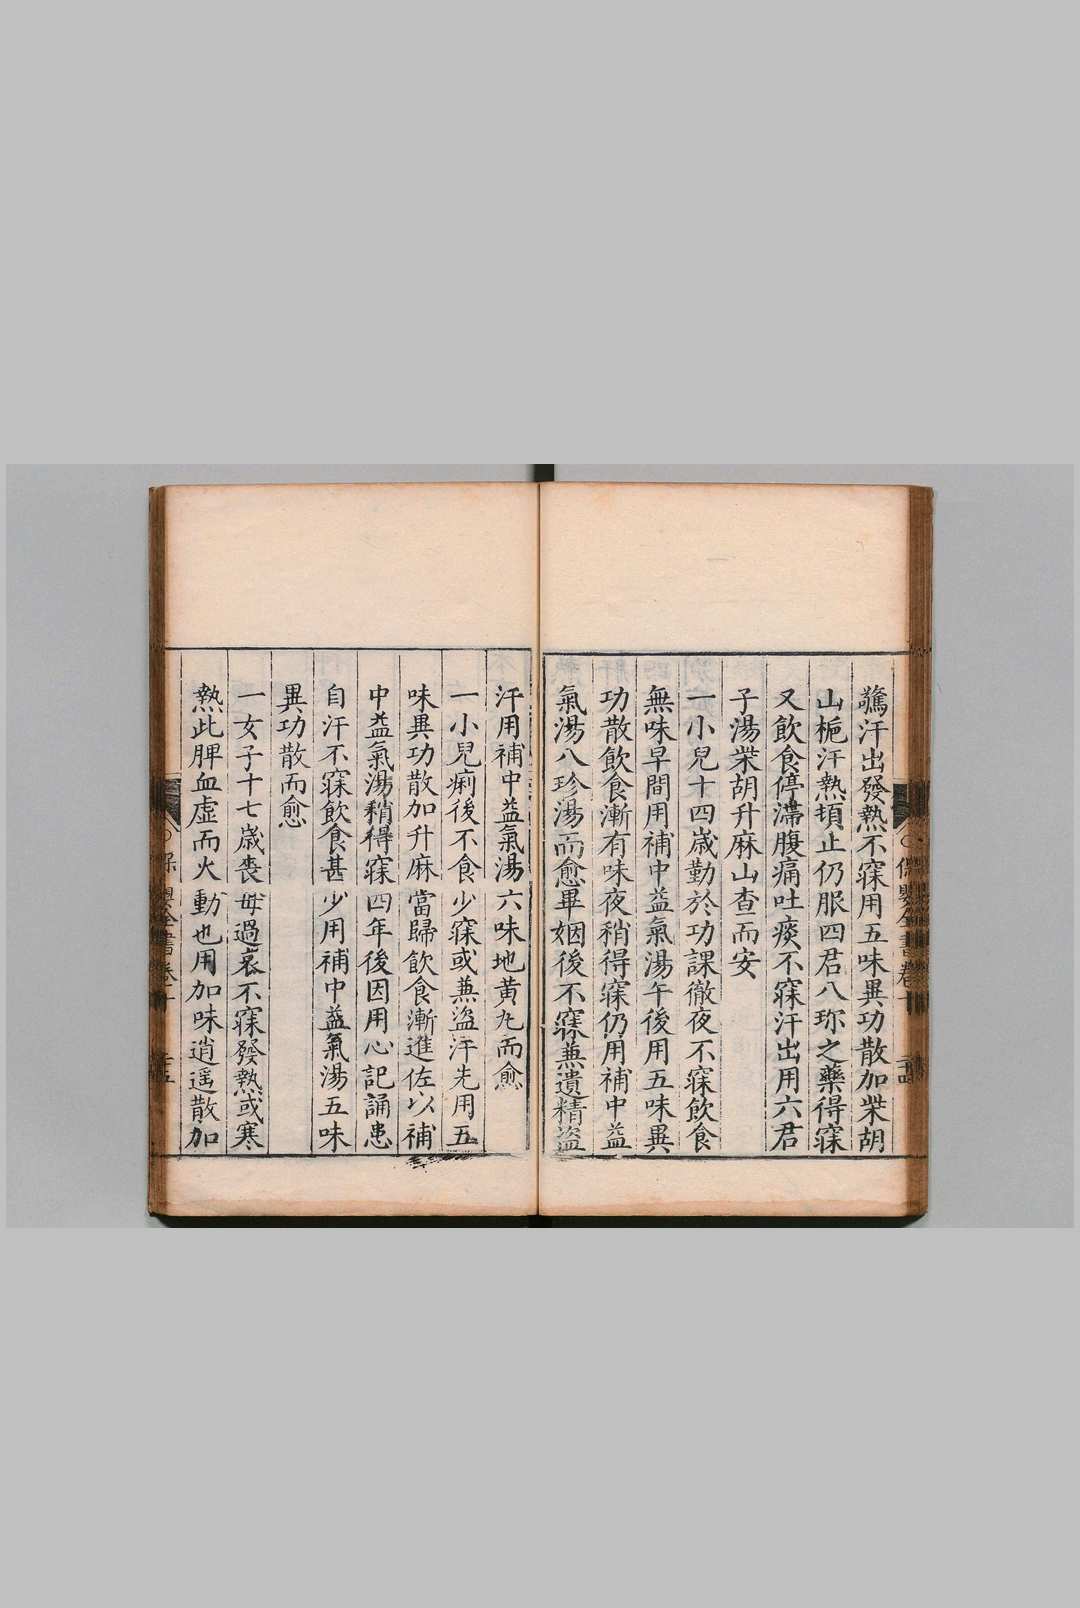 驚汗出發熱不寐用五味異功散加柴胡
山梔汗熱頓止仍服四君八珎之藥得寐
又飲食停滯腹痛吐痰不寐汗出用六君
子湯柴胡升麻山查而安
一小兒十四歲勤於功課徹夜不寐飲食
無味早間用補中益氣湯午後用五味異
功散飲食漸有味夜稍得寐仍用補中益
氣湯八珍湯而愈畢姻後不寐兼遺精盜
汗用補中益氣湯六味地黃丸而愈
一小兒痢後不食少寐或兼盜汗先用五
味異功散加升麻當歸飲食漸進佐以補
中益氣湯稍得寐四年後因用心記誦患
自汗不寐飲食甚少用補中益氣湯五味
異功散而愈
一女子十七歲喪母過哀不寐發熱或寒
熱此脾血虛而火動也用加味逍遥散加
保嬰全書卷十 二十四
保嬰全書卷十 二十五